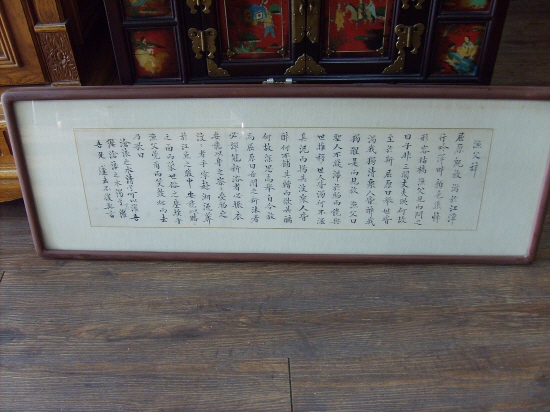 漁父辭
屈原旣放 游於江潭
行吟澤畔 顔色憔悴
形容枯槁 漁父見而問之
曰子非三閭大夫歟何故
至於斯 屈原曰擧世皆
濁我獨淸衆人皆醉我
獨醒是以見放 漁父曰
聖人不凝滯於物而能與
世推移 世人皆濁何不淈
其泥而揚其波衆人皆
醉何不餔其糟而歠其醨
何故深思高擧自令放
爲屈原曰吾聞之新沐者
必彈冠新浴者必振衣
安能以身之察察受物之
汶者乎 寧赴湘流葬
於江魚之腹中 安能以皓
之白而蒙世俗之塵埃乎
漁父莞爾而笑鼓枻而去
乃歌曰
滄浪之水淸兮可以濯吾
纓滄浪之水濁兮可以濯
吾足 遂去不復與言